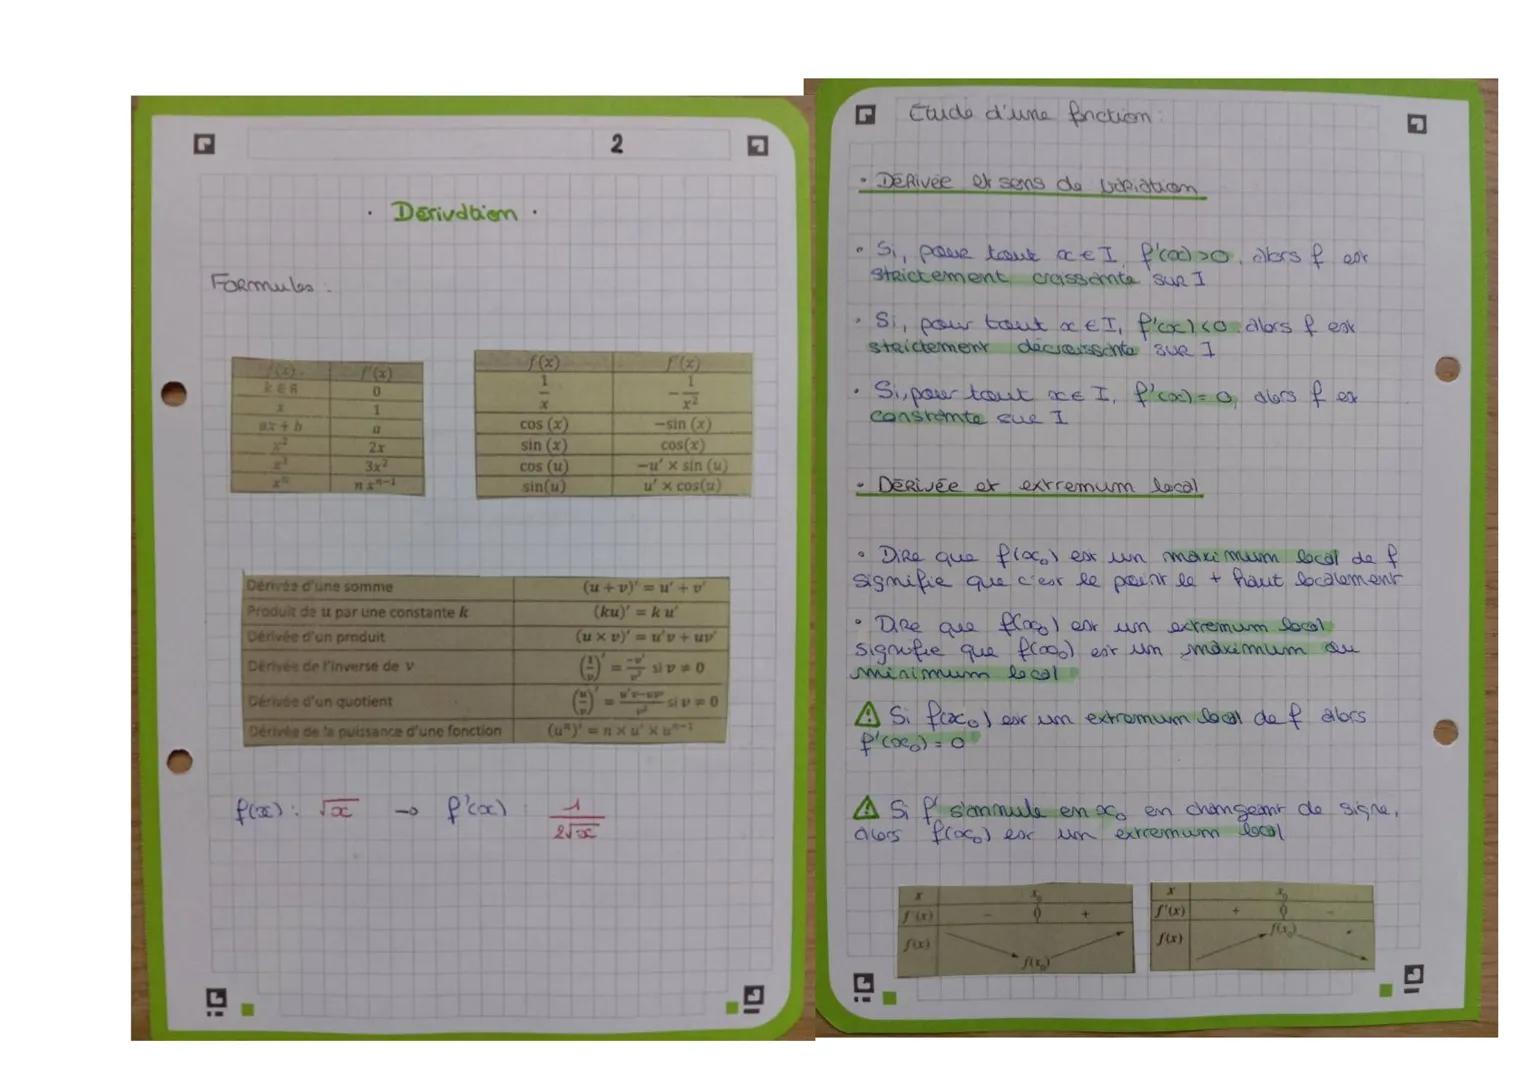 2
• Dérivation •
Formules :
f(x) f'(x)
k ∈ R 0
x 1
ax + b a
x² 2x
x³ 3x²
xⁿ n xⁿ⁻¹
f(x) f'(x)
1/x -1/x²
cos (x) -sin (x)
sin (x) cos(x)
cos (u) -u' × sin (u)
sin(u) u' × cos(u)
Dérivée d'une somme (u + v)' = u' + v'
Produit de u par une constante k (ku)' = k u'
Dérivée d'un produit (u × v)' = u'v + uv'
Dérivée de l'inverse de v (1/v)' = -v'/v² si v ≠ 0
Dérivée d'un quotient (u/v)' = u'v-uv'/v² si v ≠ 0
Dérivée de la puissance d'une fonction (uⁿ)' = n × u' × uⁿ⁻¹
f(x) : √x → f'(x) : 1/2√x
Étude d'une fonction :
• Dérivée et sens de variation
• Si, pour tout x ∈ I, f'(x) > 0, alors f est
strictement croissante sur I
• Si, pour tout x ∈ I, f'(x) < 0 alors f est
strictement décroissante sur I
• Si, pour tout x ∈ I, f'(x) = 0, alors f est
constante sur I
• Dérivée et extremum local
• Dire que f(x₀) est un maximum local de f
signifie que c'est le point le + haut localement
• Dire que f(x₀) est un extremum local
signifie que f(x₀) est un maximum ou
minimum local
⚠ Si f(x₀) est un extremum local de f alors
f'(x₀) = 0
⚠ Si f' s'annule en x₀ en changeant de signe,
alors f(x₀) est un extremum local
x x₀
f'(x) - 0 +
f(x) f(x₀)
x x₀
f'(x) + 0 -
f(x) f(x₀)